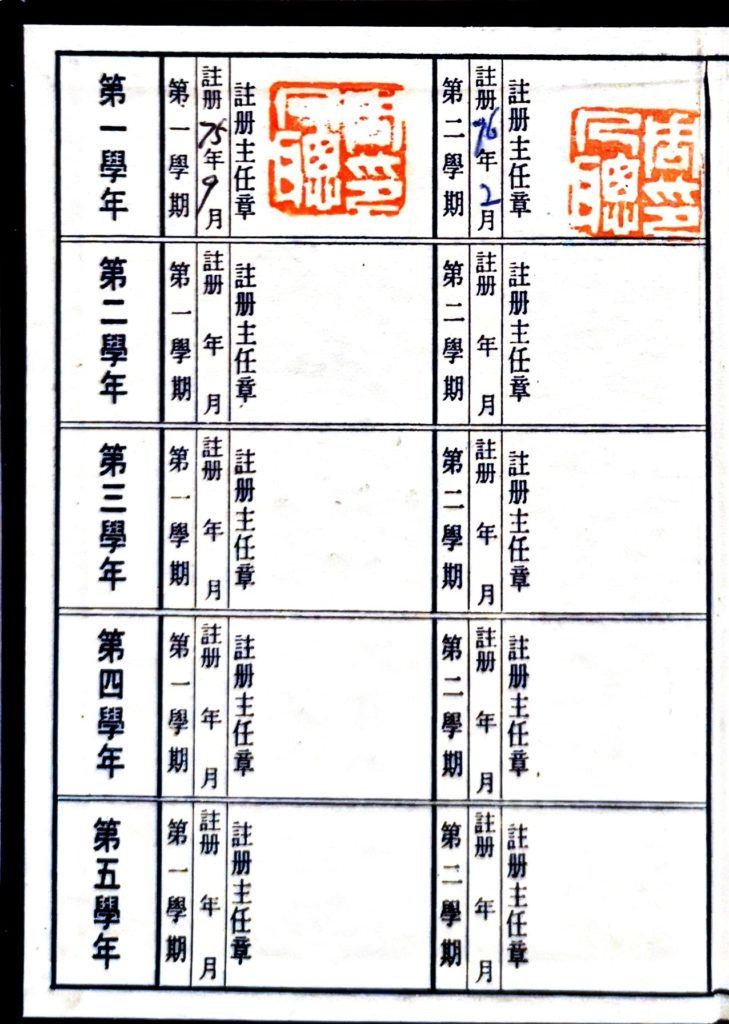 第一學年
第一學期
註册 75年9月
註册主任章
第二學期
註册 76年2月
註册主任章
第二學年
第一學期
註册 年 月
註册主任章
第二學期
註册 年 月
註册主任章
第三學年
第一學期
註册 年 月
註册主任章
第二學期
註册 年 月
註册主任章
第四學年
第一學期
註册 年 月
註册主任章
第二學期
註册 年 月
註册主任章
第五學年
第一學期
註册 年 月
註册主任章
第二學期
註册 年 月
註册主任章